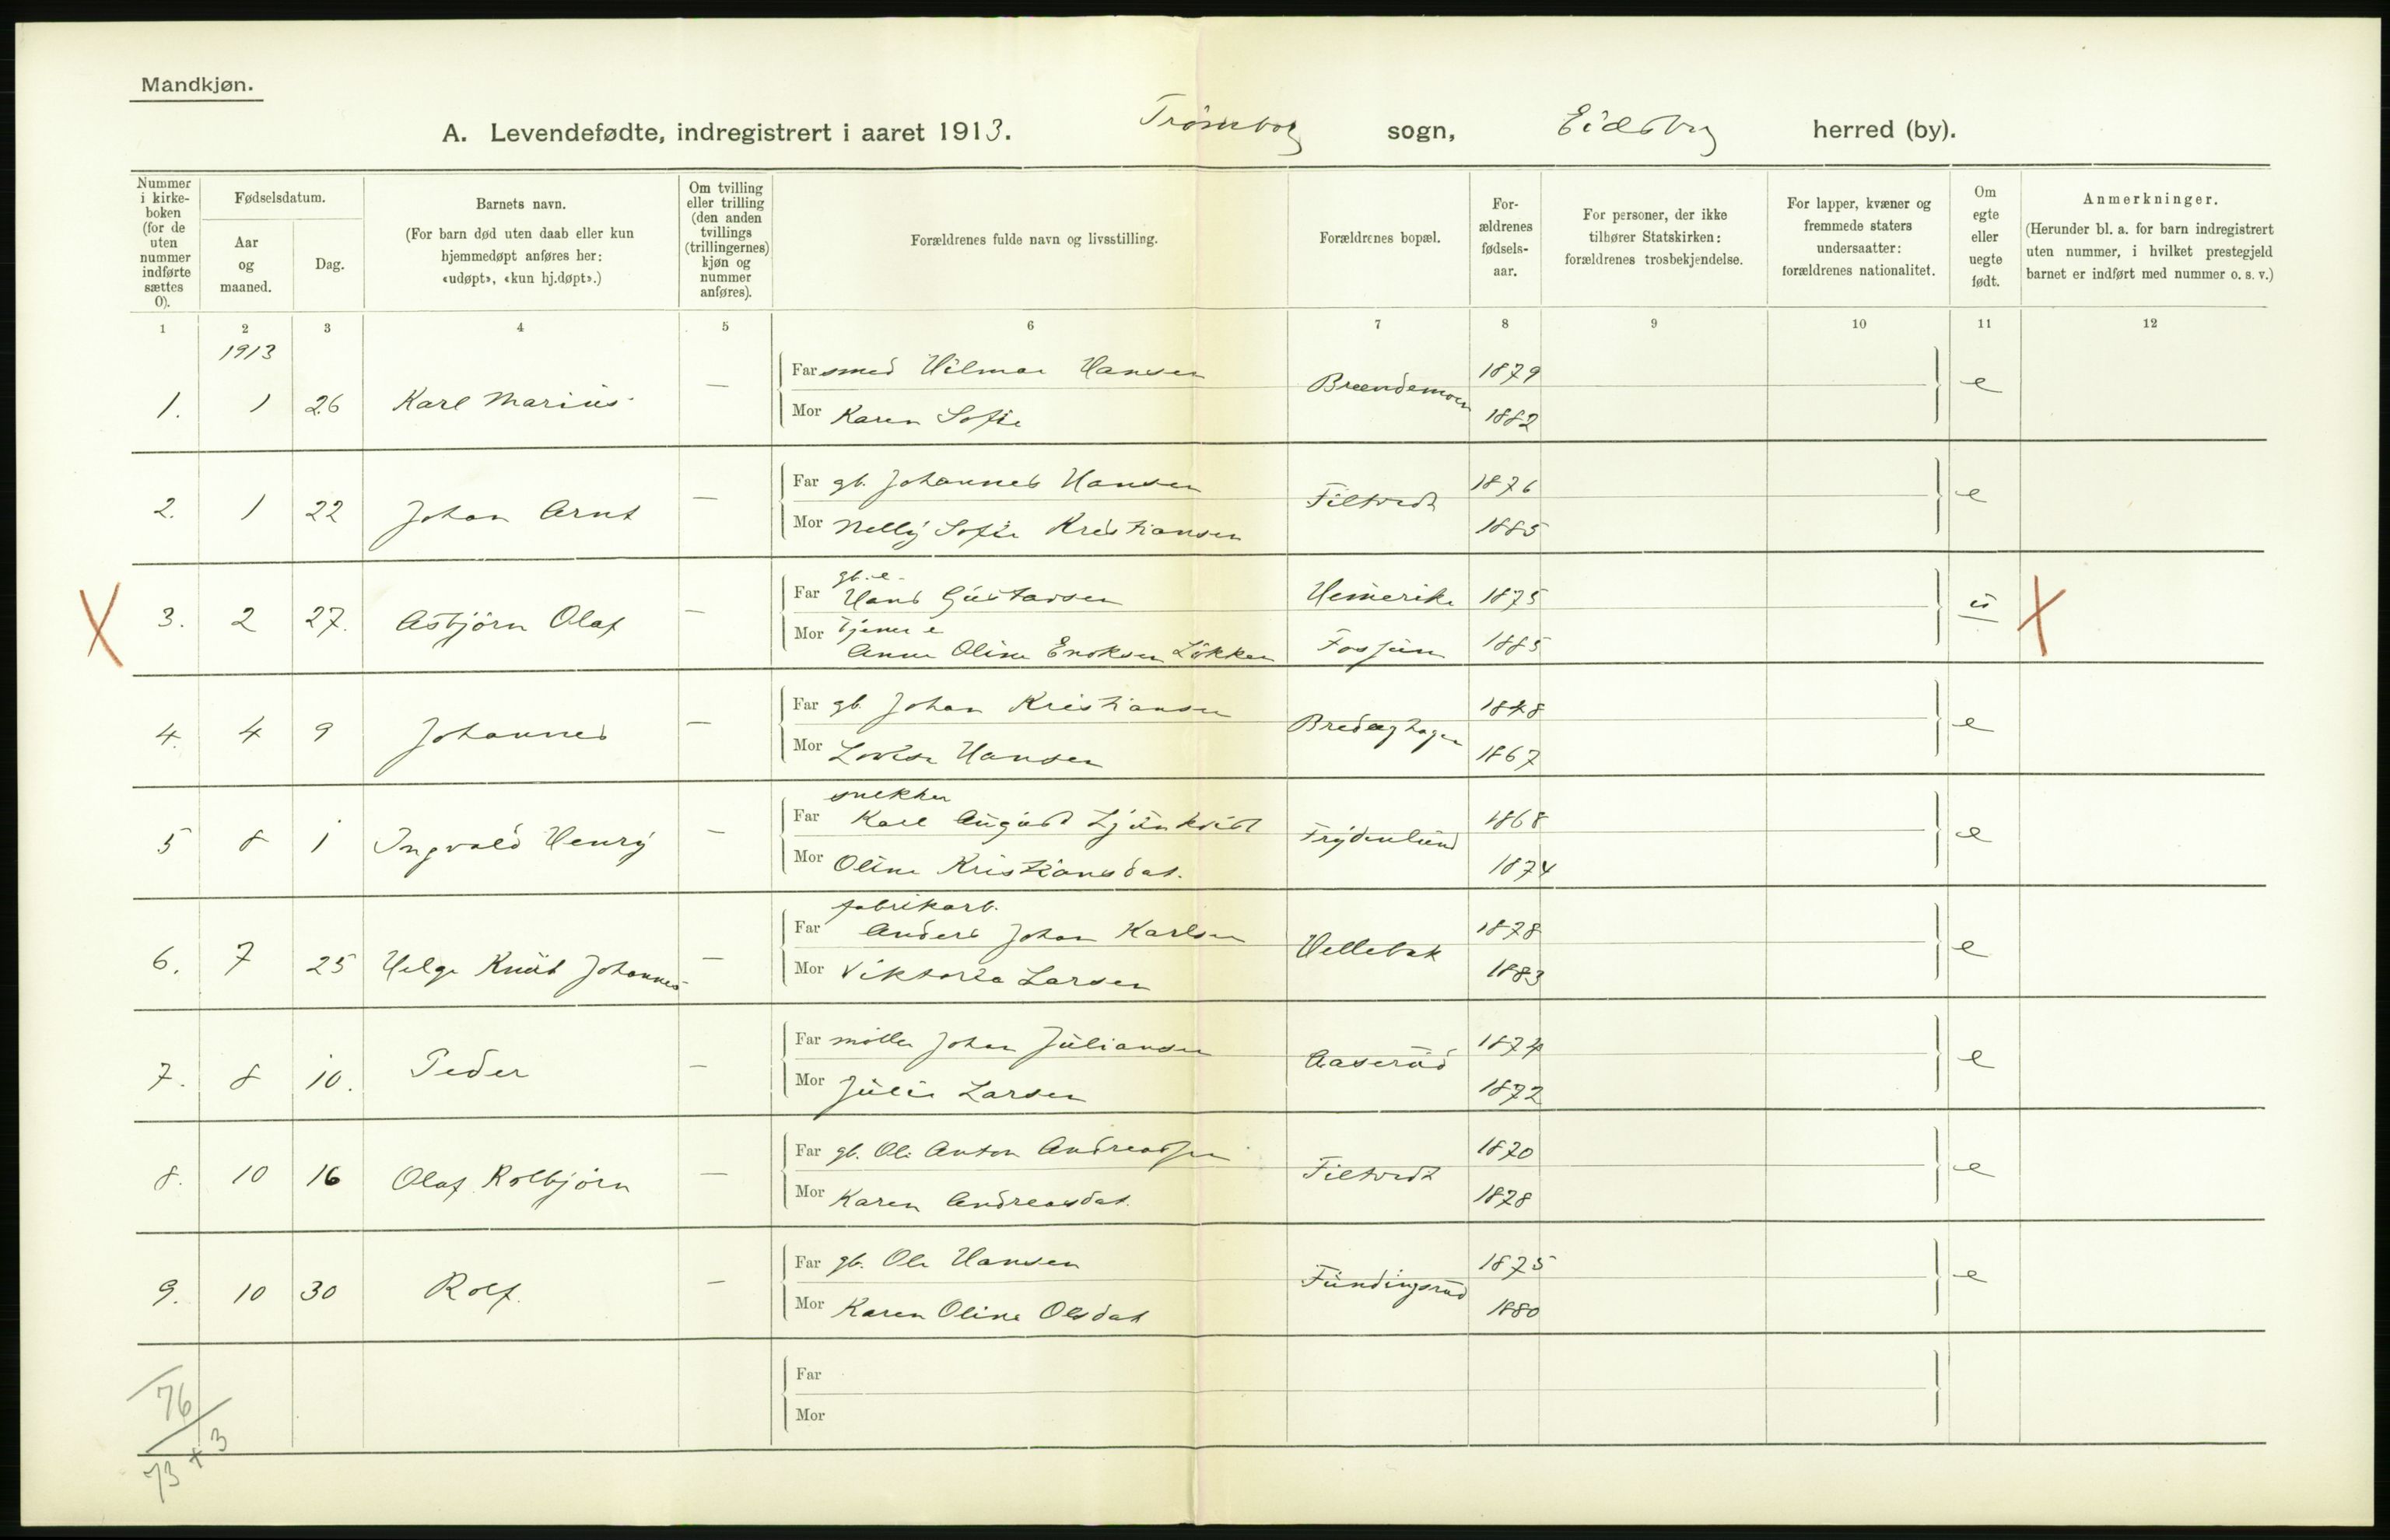 Mandkjøn.
A. Levendefødte, indregistrert i aaret 1913. Trömborg sogn, Eidsberg herred (by).
Nummer i kirkeboken (for de uten nummer indførte sættes 0).
Fødselsdatum.
Aar og maaned.
Dag.
Barnets navn.
(For barn død uten daab eller kun hjemmedøpt anføres her: «udøpt», «kun hj.døpt».)
Om tvilling eller trilling (den anden tvillings (trillingernes) kjøn og nummer anføres).
Forældrenes fulde navn og livsstilling.
Forældrenes bopæl.
Forældrenes fødselsaar.
For personer, der ikke tilhører Statskirken: forældrenes trosbekjendelse.
For lapper, kvæner og fremmede staters undersaatter: forældrenes nationalitet.
Om egte eller uegte født.
Anmerkninger.
(Herunder bl. a. for barn indregistrert uten nummer, i hvilket prestegjeld barnet er indført med nummer o. s. v.)
1 2 3 4 5 6 7 8 9 10 11 12
1913
1. 1 26 Karl Marius — Far smed Hilmar Hansen Brændemoen 1879 e
Mor Karen Sofie 1882
2. 1 22 Johan Arnt — Far gb. Johannes Hansen Filtvedt 1876 e
Mor Nelly Sofie Kristiansen 1885
X 3. 2 27. Asbjörn Olaf — Far gb. e. Hans Gustavsen 1875 u X
Mor Tjener e Anne Oline Enoksen Lökken Fossum 1885
4. 4 9 Johannes — Far gb. Johan Kristiansen 1848 e
Mor Lovise Hansen 1867
5 8 1 Ingvald Henry — Far snekker Karl August Ljunkvist Frydenlund 1868 e
Mor Oline Kristiansdat. 1874
6. 7 25 Helge Knut Johannes — Far fabrikarb. Anders Johan Karlsen Hellebæk 1878 e
Mor Viktoria Larsen 1883
7. 8 10. Peder — Far möller Johan Juliansen Aaserud 1874 e
Mor Julie Larsen 1872
8. 10 16 Olaf Kolbjörn — Far gb. Ole Anton Andreassen Filtvedt 1870 e
Mor Karen Andreasdat. 1878
9. 10 30 Rolf. — Far gb. Ole Hansen Fundingsrud 1875 e
Mor Karen Oline Olsdat 1880
Far
Mor
76
73 + 3